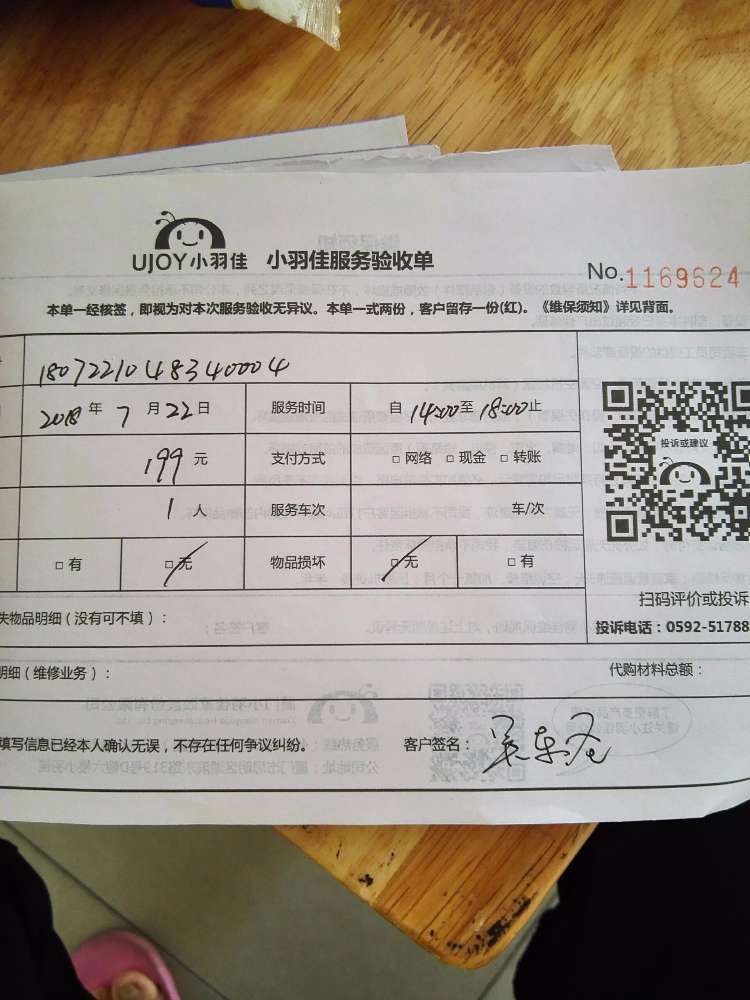 UJOY小羽佳 小羽佳服务验收单
No.1169624
本单一经核签，即视为对本次服务验收无异议。本单一式两份，客户留存一份(红)。《维保须知》详见背面。
1807221048340004
2018年7月22日 服务时间 自14:00至18:00止
199元 支付方式 □网络 □现金 □转账
投诉或建议
1人 服务车次 车/次
□有 □无 物品损坏 □无 □有
扫码评价或投诉
失物品明细（没有可不填）：
投诉电话：0592-51788
明细（维修业务）： 代购材料总额：
填写信息已经本人确认无误，不存在任何争议纠纷。 客户签名：